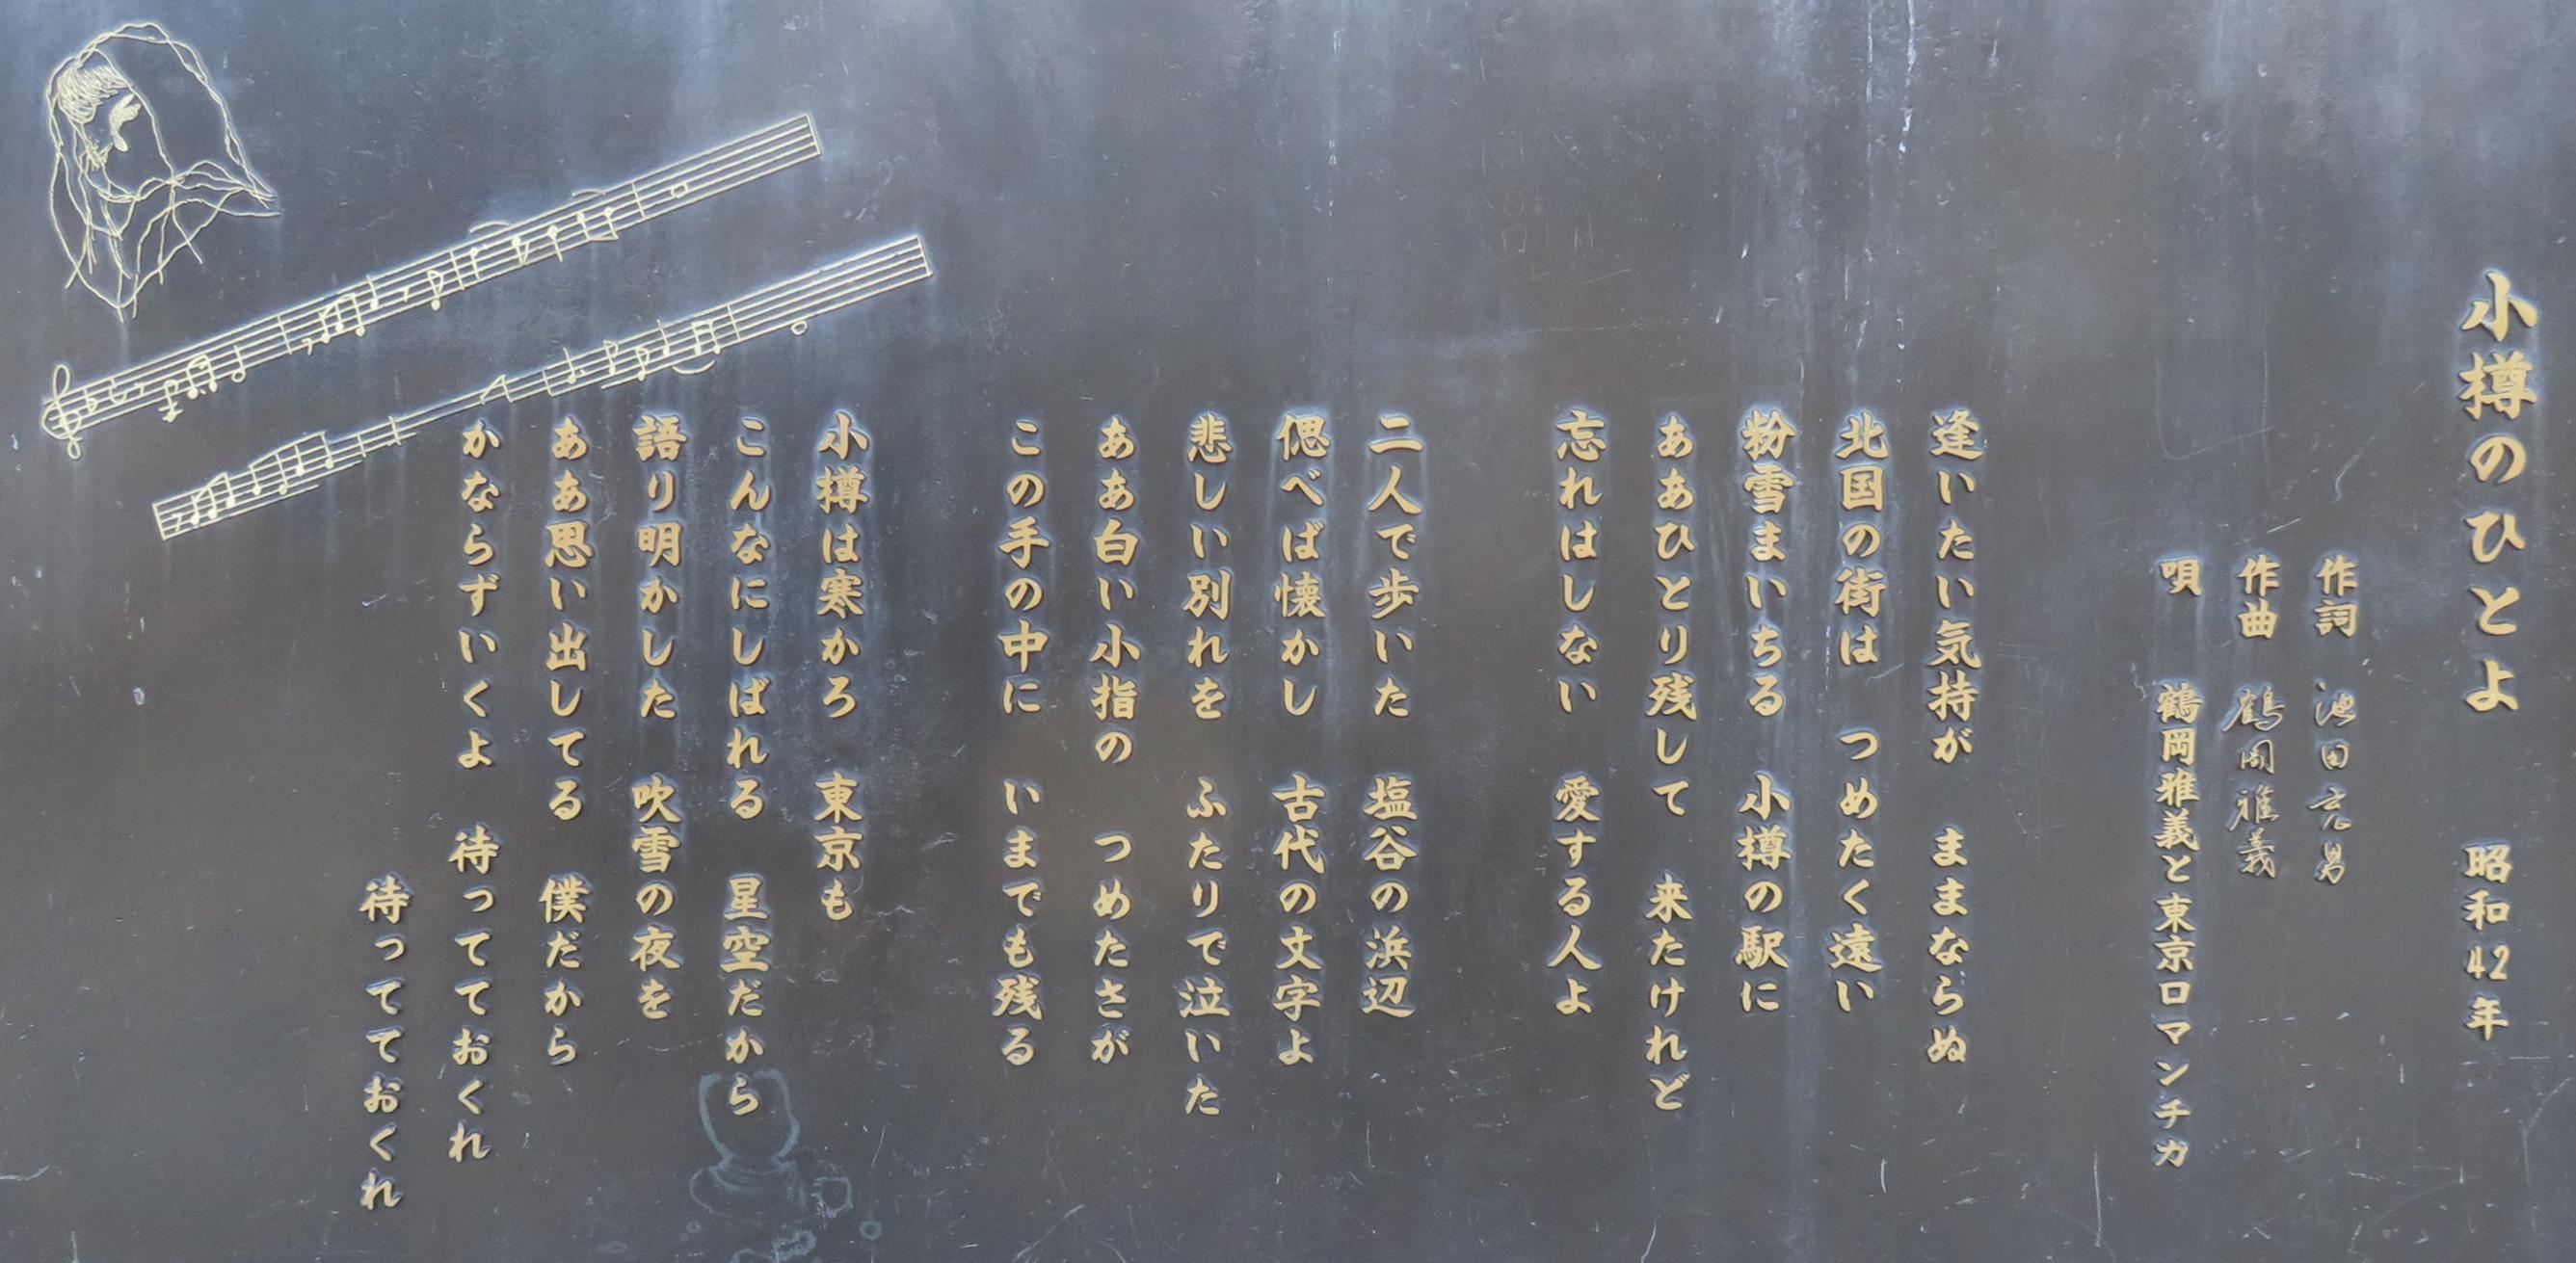 小樽のひとよ　昭和42年
作詞　池田充男
作曲　鶴岡雅義
唄　鶴岡雅義と東京ロマンチカ
逢いたい気持が　ままならぬ
北国の街は　つめたく遠い
粉雪まいちる　小樽の駅に
ああひとり残して　来たけれど
忘れはしない　愛する人よ
二人で歩いた　塩谷の浜辺
偲べば懐かし　古代の文字よ
悲しい別れを　ふたりで泣いた
ああ白い小指の　つめたさが
この手の中に　いまでも残る
小樽は寒かろ　東京も
こんなにしばれる　星空だから
語り明かした　吹雪の夜を
ああ思い出してる　僕だから
かならずいくよ　待ってておくれ
待ってておくれ